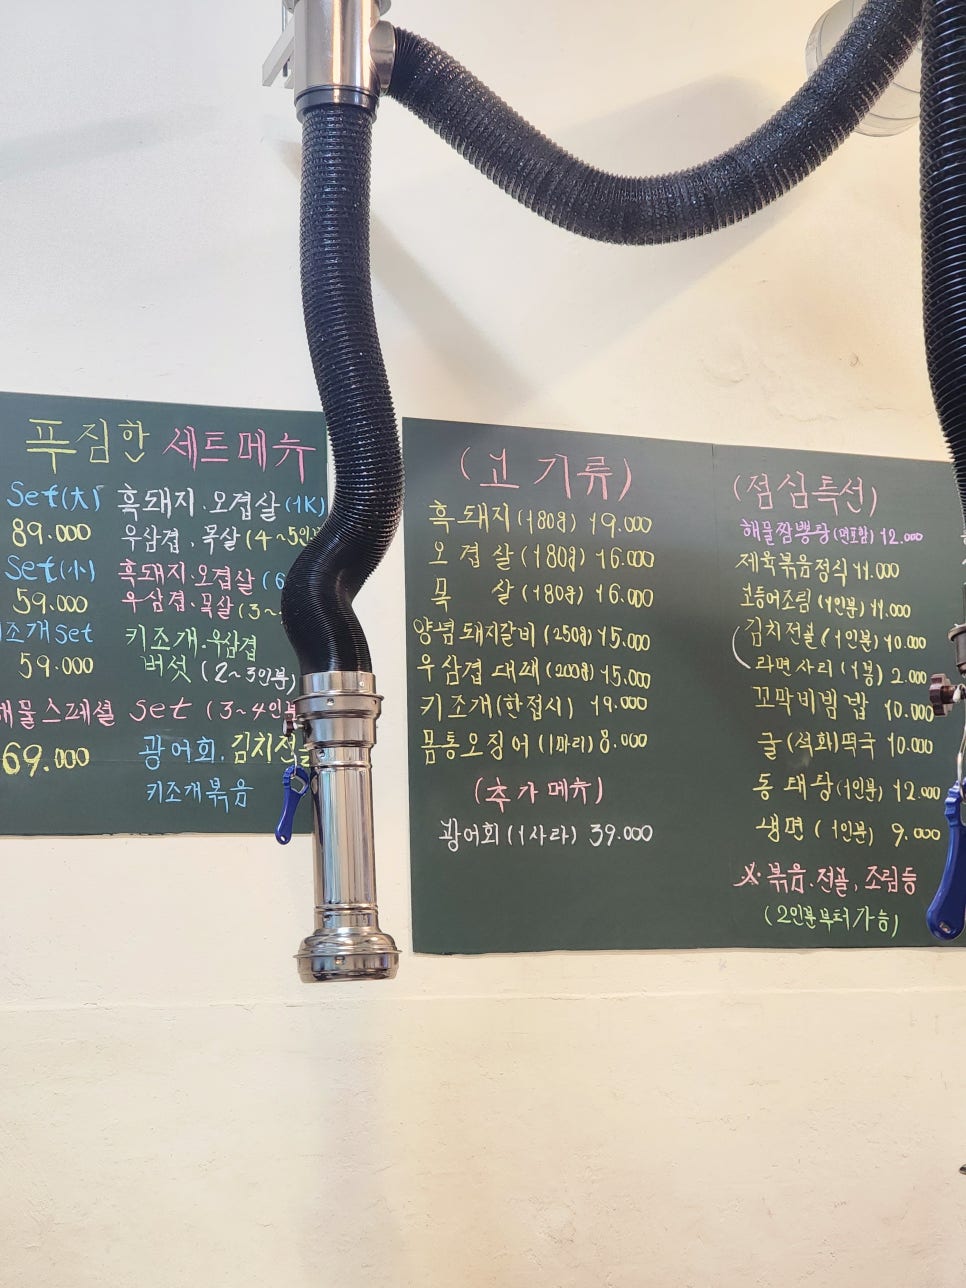 푸짐한 세트메뉴
Set(大) 흑돼지.오겹살(1K)
89.000 우삼겹.목살(4~5인분
Set(小) 흑돼지.오겹살(6
59.000 우삼겹.목살(3~
조개set 키조개.우삼겹
59.000 버섯(2~3인분)
해물스페셜 set (3~4인분
69.000 광어회.김치전골
키조개볶음
(고기류)
흑돼지(180g) 19.000
오겹살(180g) 16.000
목살(180g) 16.000
양념돼지갈비(250g) 15.000
우삼겹대패(200g) 15.000
키조개(한접시) 19.000
몸통오징어(1마리) 8.000
(추가메뉴)
광어회(1사라) 39.000
(점심특선)
해물짬뽕탕(면포함) 12.000
제육볶음정식 11.000
고등어조림(1인분) 11.000
김치전골(1인분) 10.000
라면사리(1봉) 2.000
꼬막비빔밥 10.000
굴(석화)떡국 10.000
동태탕(1인분) 12.000
냉면(1인분) 9.000
※.볶음.전골.조림등
(2인분부터가능)